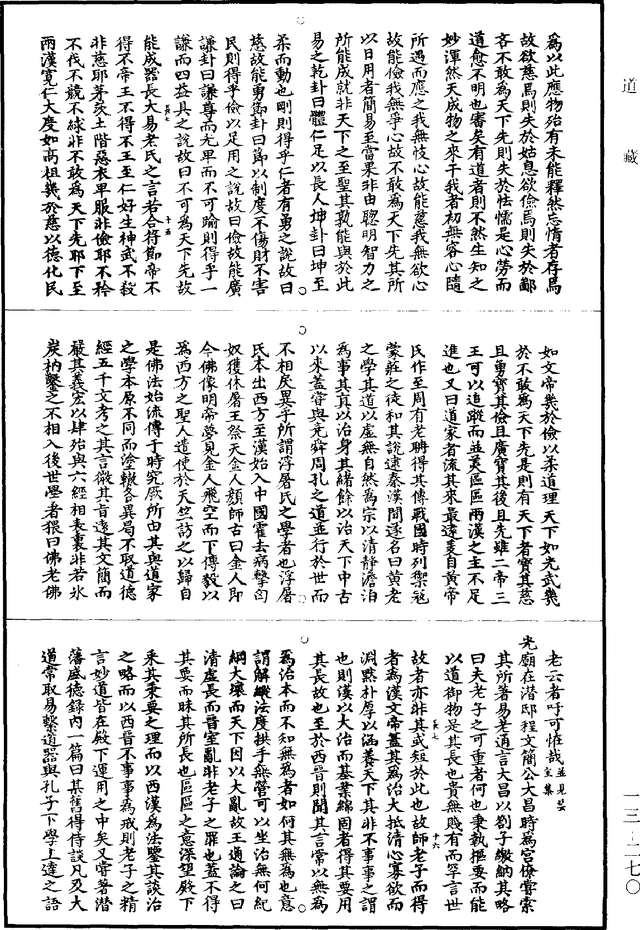 道藏
爲以此應物殆有未能釋然忘情者存焉
故欲慈焉則失於姑息欲儉焉則失於鄙
吝不敢爲天下先則失於怯懦是心勞而
道愈不明也審矣有道者則不然生知之
妙渾然天成物之來干我者初無容心隨
所遇而應之我無忮心故能慈我無欲心
故能儉我無爭心故不敢爲天下先其所
以日用者簡易至當果非由聰明智力之
所能成就非天下之至聖其孰能與於此
易之乾卦曰體仁足以長人坤卦曰坤至
柔而動也剛則得乎仁者有勇之說故曰
慈故能勇節卦曰節以制度不傷財不害
民則得乎儉以足用之說故曰儉故能廣
謙卦曰謙尊而光卑而不可踰則得乎一
謙而四益具之說故曰不可爲天下先故
能成器長大易老氏之言若合符節帝不
得不帝王不得不王至仁好生神武不殺
非慈耶茅茨土階惡衣卑服非儉耶不矜
不伐不競不絿非不敢爲天下先耶下至
兩漢寛仁大度如高祖幾於慈以德化民
如文帝幾於儉以柔道理天下如光武幾
於不敢爲天下先是則有天下者寳其慈
且勇寳其儉且廣寳其後且先雖二帝三
王可以追蹤而並美區區兩漢之主不足
進也又曰道家者流其來最遠蓋自黄帝
氏作至周有老聃得其傳戰國時列禦寇
蒙莊之徒和其說逮秦漢間遂名曰黄老
之學其道以虛無自然爲宗以清靜澹泊
爲事其真以治身其緒餘以治天下中古
以來蓋甞與堯舜周孔之道並行於世而
不相戾異乎所謂浮屠氏之學者也浮屠
氏本出西方至漢始入中國霍去病擊匈
奴獲休屠王祭天金人顔師古曰金人即
今佛像明帝夢見金人飛空而下傳毅以
爲西方之聖人遣使於天竺訪之以歸自
是佛法始流傳于時究厥所由其與道家
之學本原不同而塗轍各異局不取道德
經五千文考之其言微其旨遠其文簡而
嚴其義宏以肆殆與六經相表裏非若氷
炭枘鑿之不相入後世學者猥曰佛老佛
老云者吁可恠哉並見芸室集
光廟在潜邸程文簡公大昌時爲宮僚甞索
其所著易老通言大昌以劄子繳納其略
曰夫老子之可重者何也秉執樞要而能
以道御物是其長也貴無賤有而罕言世
故者亦非其或短於此也故師老子而得
者爲漢文帝蓋其爲治大抵清心寡欲而
淵黙朴厚以涵養天下其非不事事之謂
也則漢以大治而基業綿固者得其要用
其長故也至於西晉則聞其言常以無爲
爲治本而不知無爲者如何其無爲也意
謂解縱法度拱手無營可以坐治無何紀
綱大壞而天下因以大亂故王通論之曰
清虛長而晉室亂非老子之罪也蓋不得
其要而昧其所長也區區之意深望殿下
釆其秉要之理而以西漢爲法鑒其談治
之略而以西晉不事事爲戒則老子之精
言妙道皆在殿下運用之中矣又甞著潜
藩盛德錄內一篇曰其舊得侍談凡及大
道常取易繫道器與孔子下學上達之語
長七
十五
長七
十六
一三—二七〇